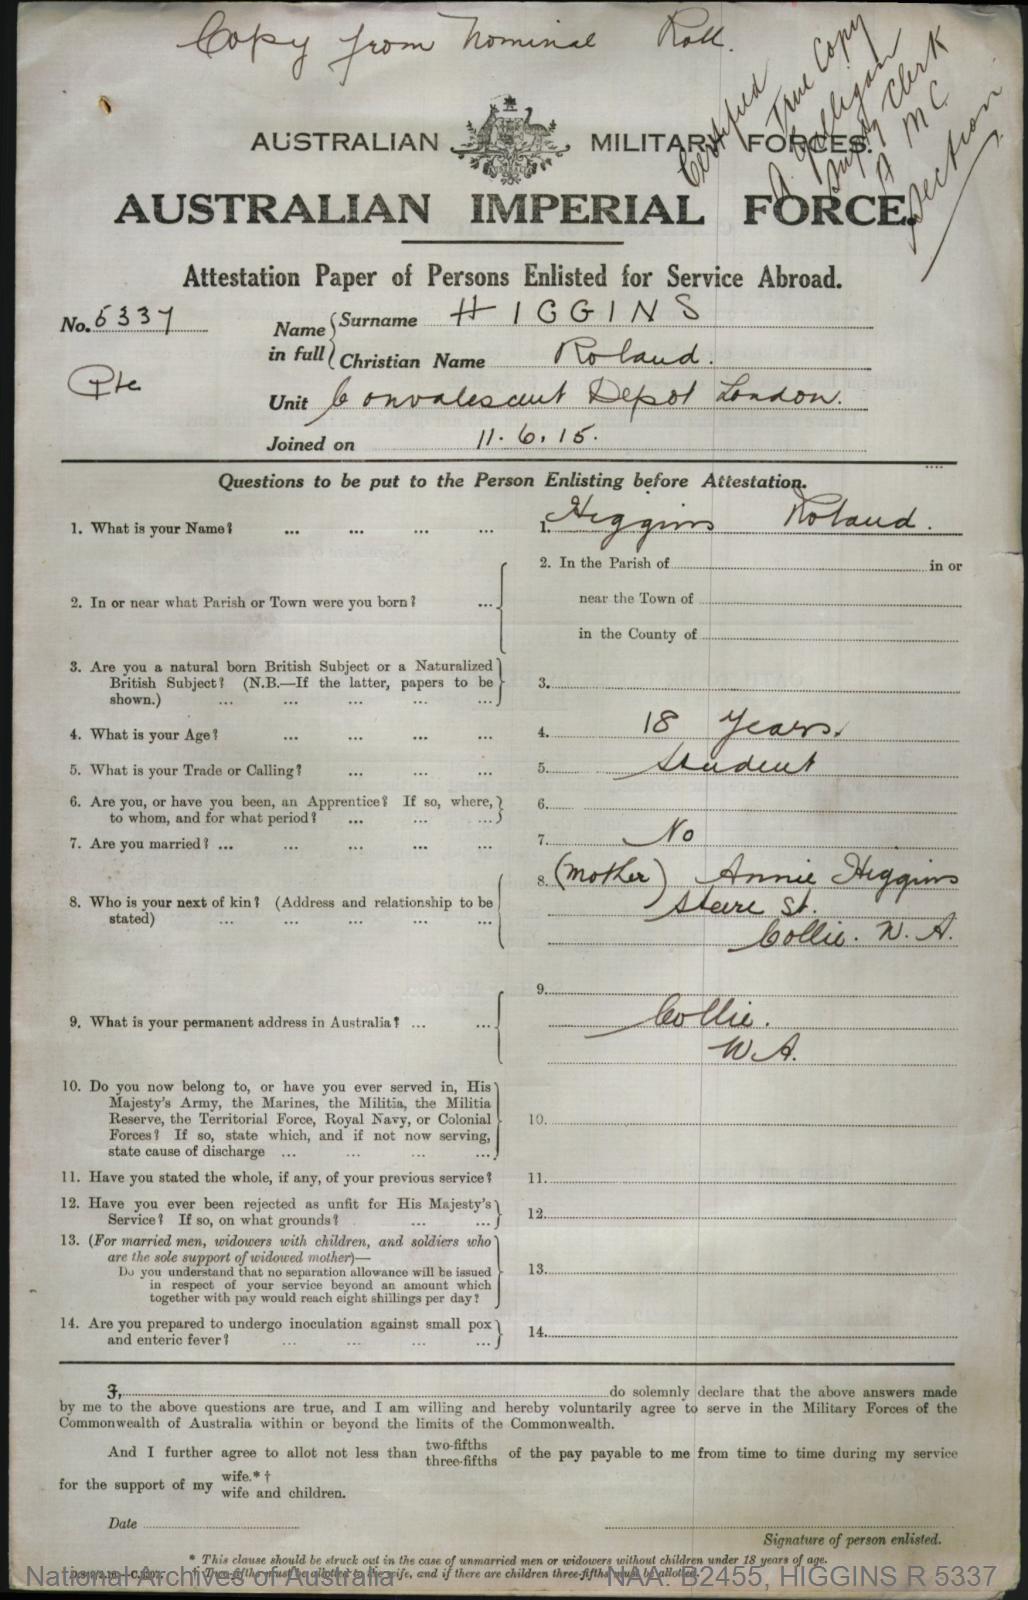 Copy from Nominal Roll.
Certified
True Copy
Clerk
A M C
Section
AUSTRALIAN MILITARY FORCES.
AUSTRALIAN IMPERIAL FORCE.
Attestation Paper of Persons Enlisted for Service Abroad.
No. 5337
Name in full { Surname HIGGINS
Christian Name Roland.
Pte
Unit Convalescent Depot London.
Joined on 11.6.15.
Questions to be put to the Person Enlisting before Attestation.
1. What is your Name? ... ... ... ... 1. Higgins Roland.
2. In or near what Parish or Town were you born? ... 2. In the Parish of in or
near the Town of
in the County of
3. Are you a natural born British Subject or a Naturalized
British Subject? (N.B.—If the latter, papers to be
shown.) ... ... ... ... ... 3.
4. What is your Age? ... ... ... ... 4. 18 Years.
5. What is your Trade or Calling? ... ... ... 5. Student
6. Are you, or have you been, an Apprentice? If so, where,
to whom, and for what period? ... ... ... 6.
7. Are you married? ... ... ... ... ... 7. No
8. Who is your next of kin? (Address and relationship to be
stated) ... ... ... ... ... 8. (Mother) Annie Higgins
Steere St.
Collie. W. A.
9. What is your permanent address in Australia? ... ... 9.
Collie.
W A.
10. Do you now belong to, or have you ever served in, His
Majesty's Army, the Marines, the Militia, the Militia
Reserve, the Territorial Force, Royal Navy, or Colonial
Forces? If so, state which, and if not now serving,
state cause of discharge ... ... ... ... 10.
11. Have you stated the whole, if any, of your previous service? 11.
12. Have you ever been rejected as unfit for His Majesty's
Service? If so, on what grounds? ... ... 12.
13. (For married men, widowers with children, and soldiers who
are the sole support of widowed mother)—
Do you understand that no separation allowance will be issued
in respect of your service beyond an amount which
together with pay would reach eight shillings per day? 13.
14. Are you prepared to undergo inoculation against small pox
and enteric fever? ... ... ... ... 14.
I, do solemnly declare that the above answers made
by me to the above questions are true, and I am willing and hereby voluntarily agree to serve in the Military Forces of the
Commonwealth of Australia within or beyond the limits of the Commonwealth.
And I further agree to allot not less than two-fifths three-fifths of the pay payable to me from time to time during my service
for the support of my wife.* † wife and children.
Date
Signature of person enlisted.
* This clause should be struck out in the case of unmarried men or widowers without children under 18 years of age.
† Two-fifths must be allotted to the wife, and if there are children three-fifths must be allotted.
National Archives of Australia NAA: B2455, HIGGINS R 5337